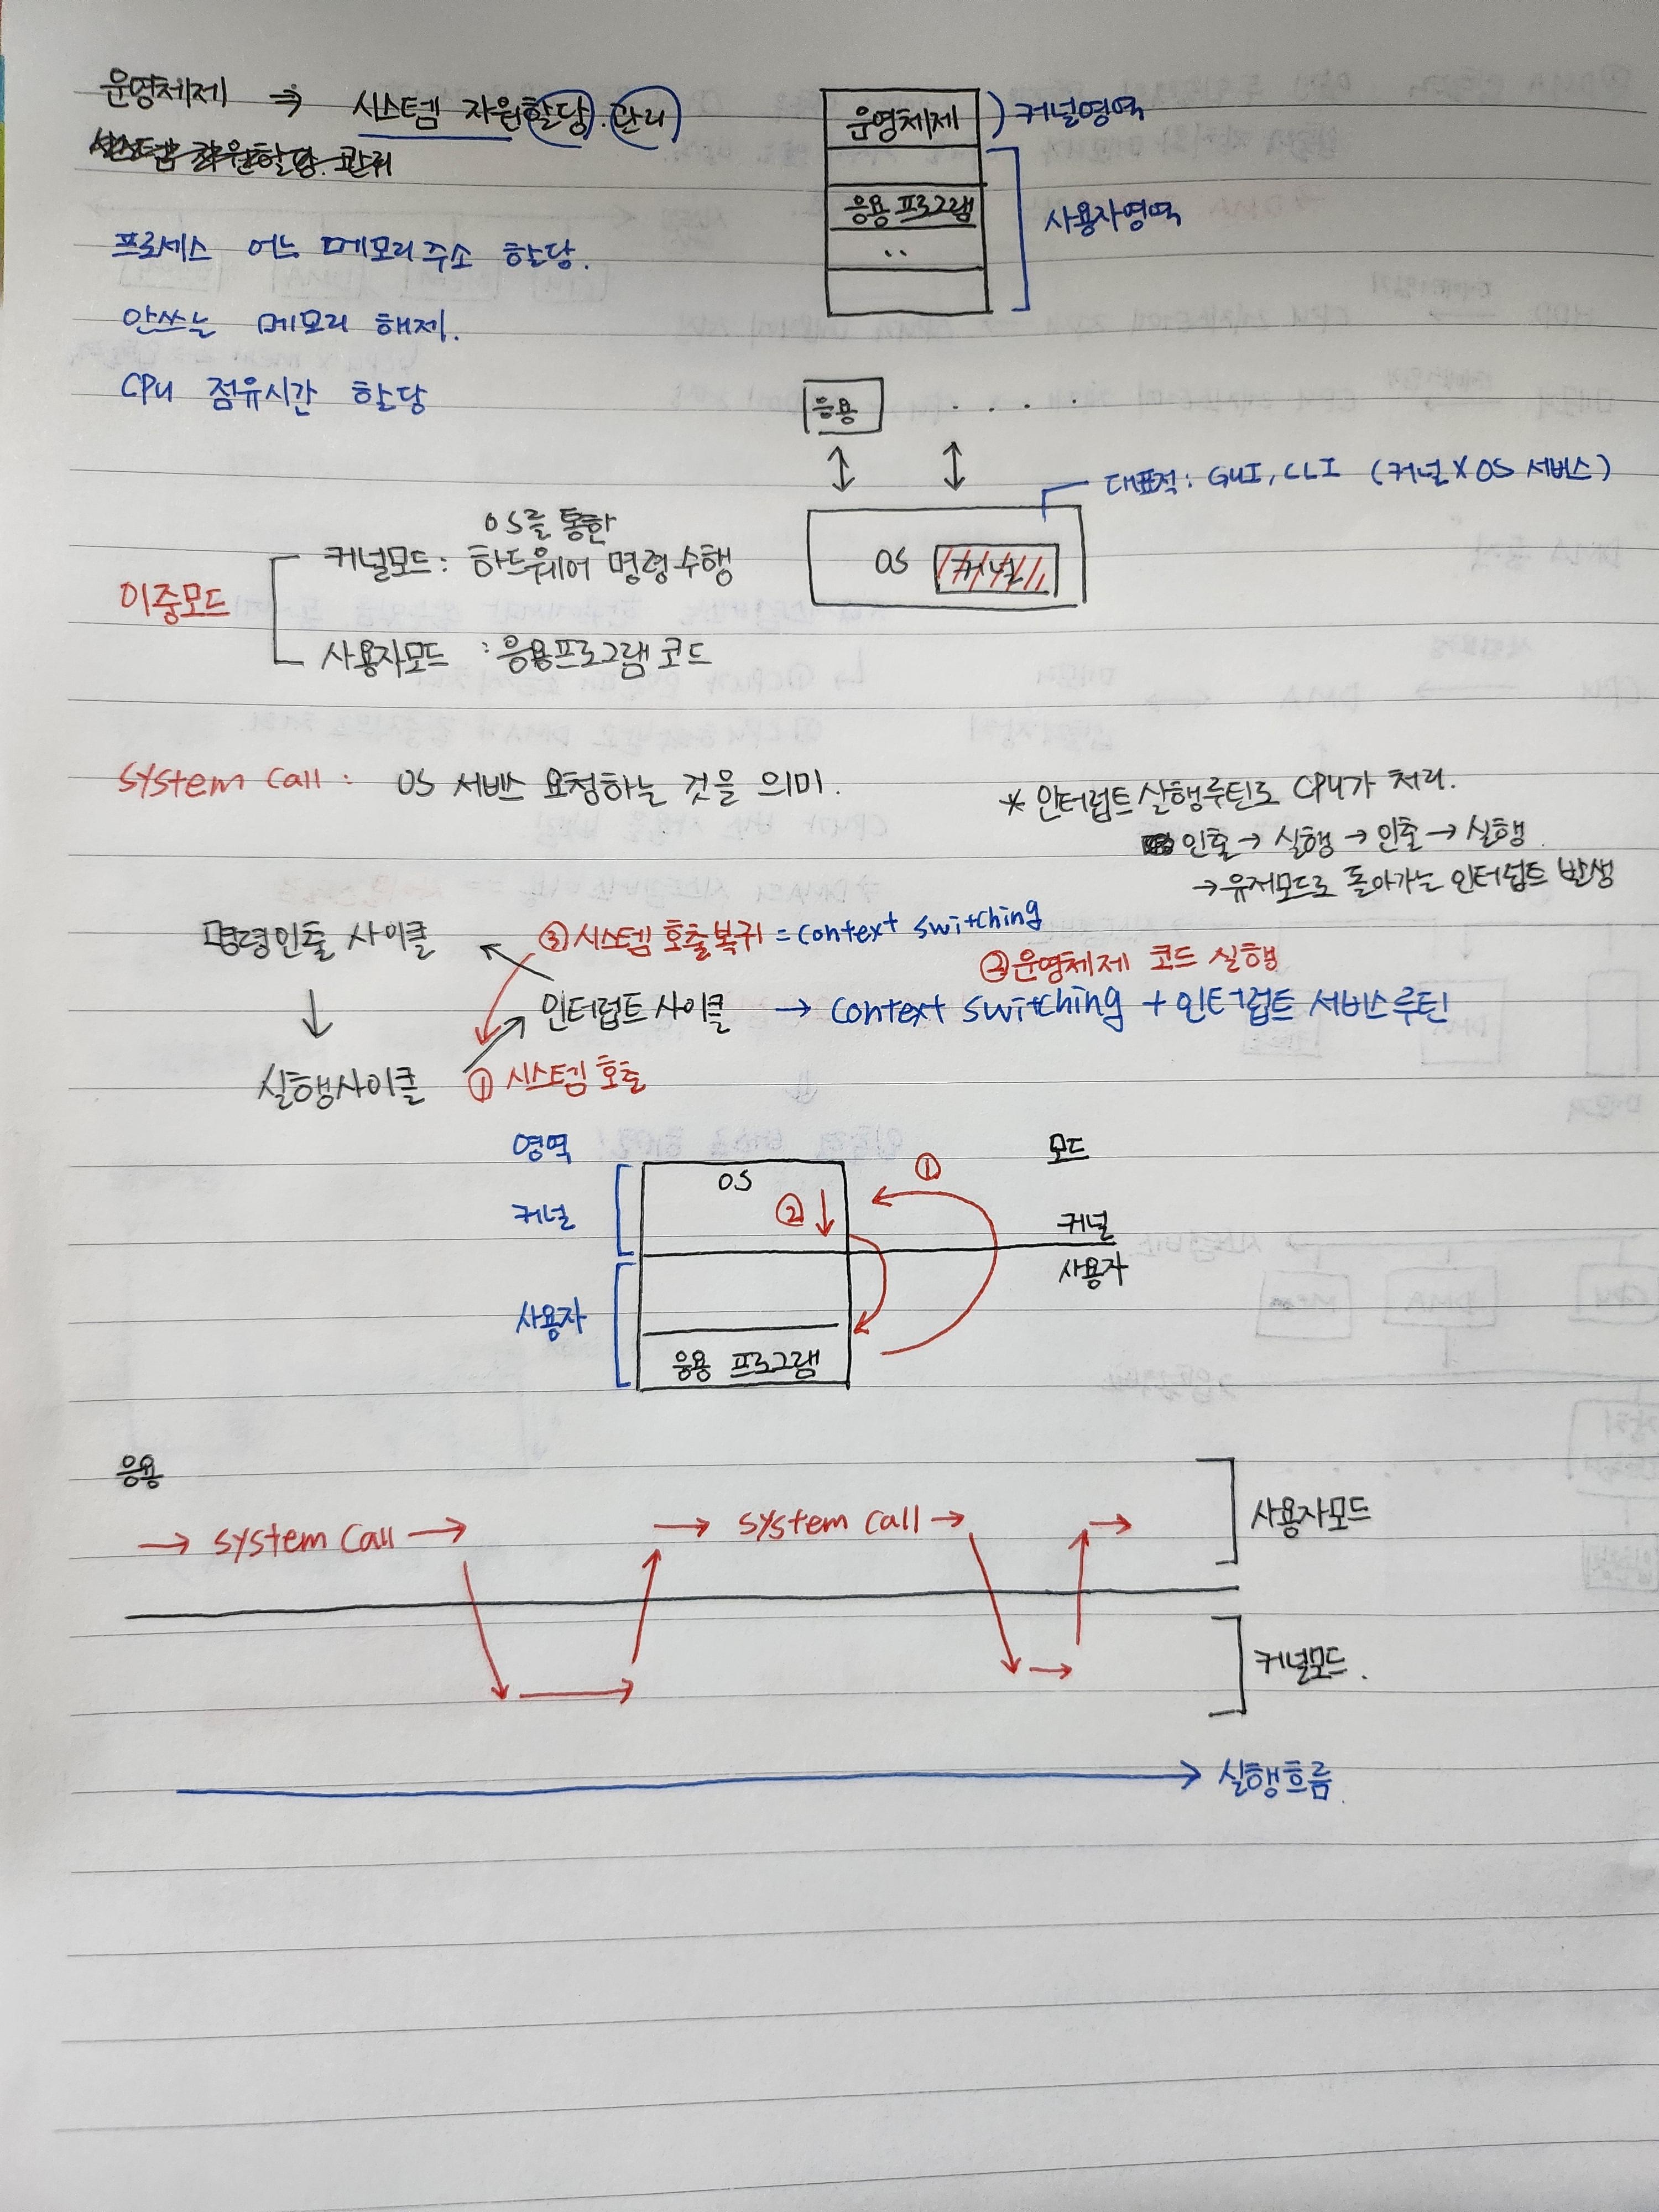 운영체제 ⇒ 시스템 자원할당.관리
시스템 자원할당.관리
프로세스 어느 메모리주소 할당.
안쓰는 메모리 해제.
CPU 점유시간 할당
운영체제 ) 커널영역
응용프로그램
..
사용자영역
응용 . . . .
대표적: GUI, CLI (커널X OS 서비스)
OS 커널
이중모드
OS를 통한
커널모드: 하드웨어 명령수행
사용자모드 : 응용프로그램코드
System Call : OS 서비스 요청하는 것을 의미.
* 인터럽트실행루틴로 CPU가 처리.
인출→ 실행→인출→실행
→유저모드로 돌아가는 인터럽트 발생
명령인출 사이클
③시스템 호출복귀 = Context switching
②운영체제 코드 실행
인터럽트사이클 → Context switching + 인터럽트 서비스루틴
실행사이클
① 시스템호출
영역 모드
OS
① ②
커널 커널
사용자
사용자
응용 프로그램
응용
→ System Call → → System Call →
→
사용자모드
커널모드.
실행흐름